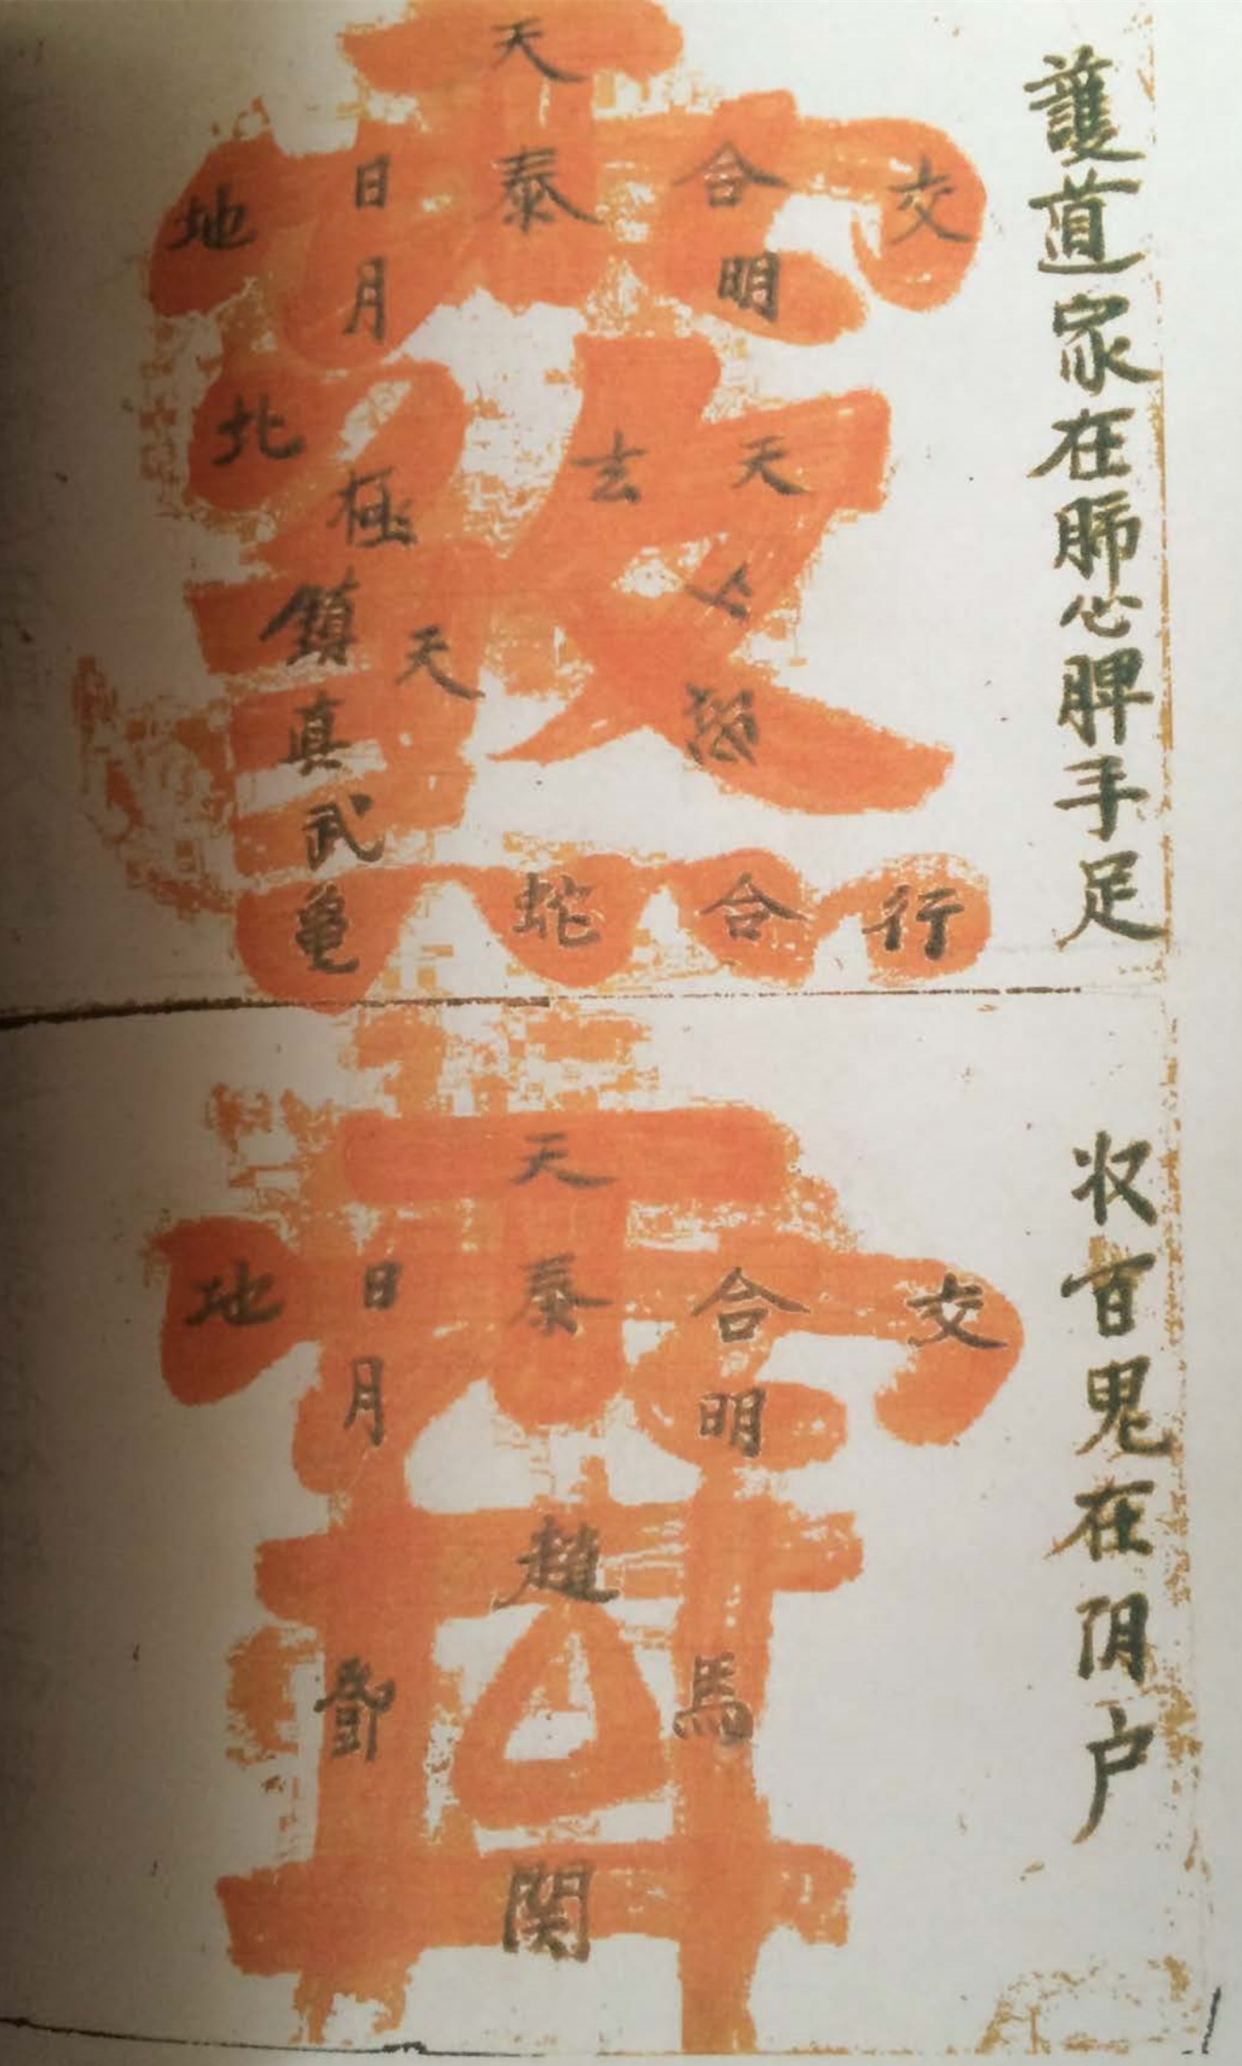 護道家在肺心脾手足
天
地 日 泰 合 交
月 明
北 極 玄 天
鎮 天 上
真
武
龜 蛇 合 行
収百鬼在阴户
天
地 日 泰 合 交
月 明
趙
鄧 馬
関